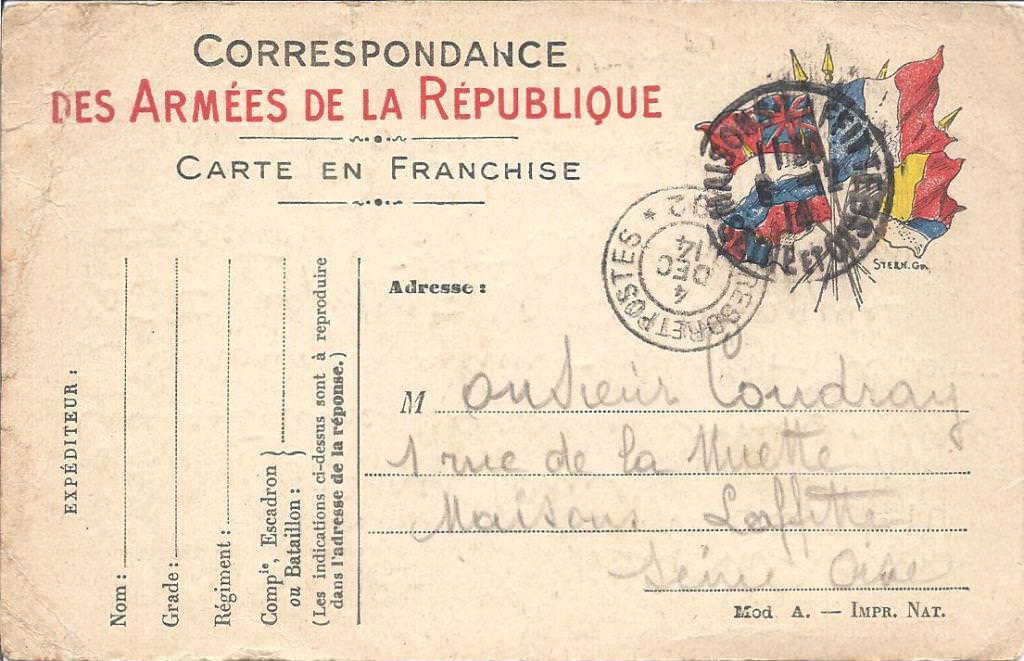 CORRESPONDANCE
DES ARMÉES DE LA RÉPUBLIQUE
CARTE EN FRANCHISE
STERN. Gr.
TRESOR ET POSTES
4
DEC
14
EXPÉDITEUR :
Nom :
Grade :
Régiment :
Compie, Escadron
ou Bataillon :
(Les indications ci-dessus sont à reproduire
dans l'adresse de la réponse.)
Adresse :
Monsieur Coudray
1 rue de la Muette
Maisons Laffitte
Seine Oise
Mod A. — IMPR. NAT.